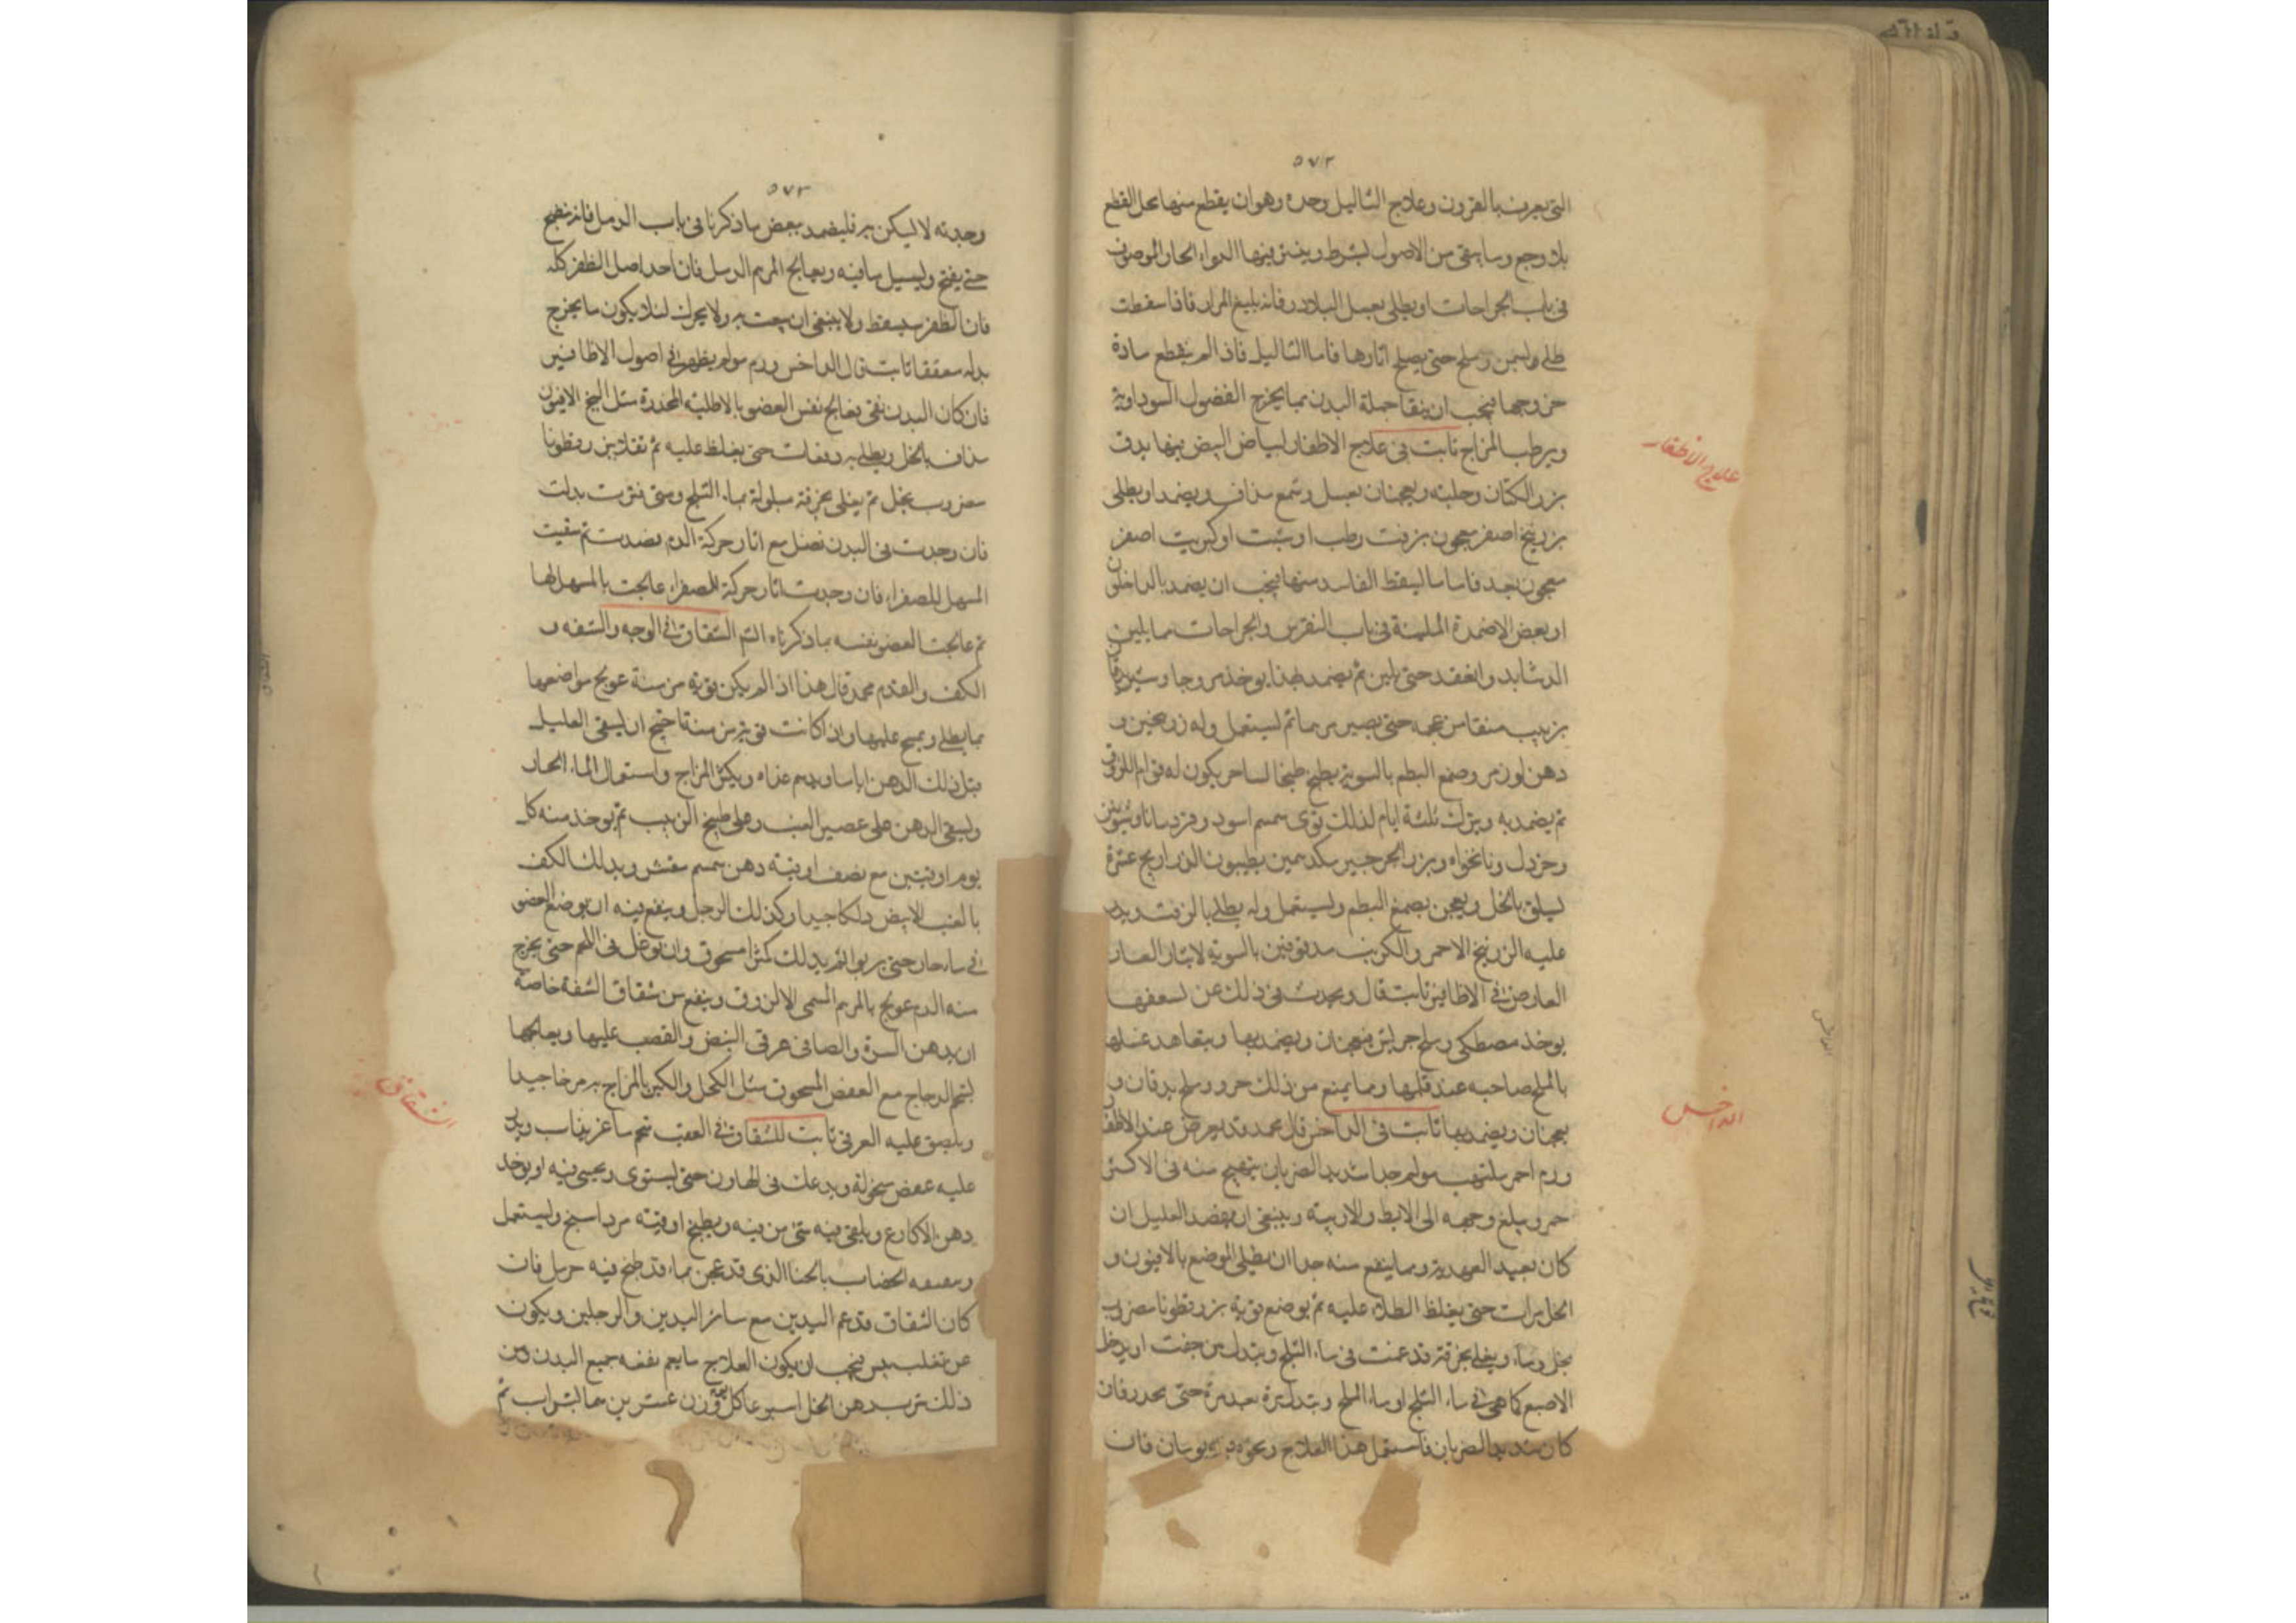 ٥٧٢
التى يعرف بالقرون وعلاج الثاليل وحده وهو ان يقطع منها محل القطع
بلا وجع وما يبقى من الاصول يشرط وينثر فيها الدواء الحار الموصوف
فى باب الجراحات او يطلى بعسل البلادر فانه بليغ المرار فاذا سقطت
طلى بسمن وملح حتى يصلح اثارها فاما الثاليل فاذا لم يقطع مادة
خروجها فيجب ان ينقا جملة البدن بما يخرج الفضول السوداوية
ويرطب المزاج ثابت فى علاج الاظفار لبياض البيض فيها يدق
بزر الكتان وحلبة ويعجنان بعسل وشمع مذاف ويضمد او يطلى
بزرنيخ اصفر معجون بزفت رطب او بشب او كبريت اصفر
معجون فاما ما ليسقط الفاسد منها فيجب ان يضمد بالداخلون
او بعض الاضمدة الملينة فى باب النقرس والجراحات مما يلين
الدشابد والعقد حتى يلين ثم يضمد بهذا يوخذ وجاوشير
بزبيب منقا من عجمه حتى يصير مرهما ثم ليستعمل وله زرنيخين و
دهن لوز مر وصمغ البطم بالسوية يطبخ طبخا يكون له قوام
ثم يضمد به ويترك ثلثة ايام لذلك قوى سمسم اسود وقردمانا وشونيز
وخردل ونانخواه وبزر الجرجير عشرة
بالخل ويعجن بصمغ البطم وليستعمل وله يطلى بالزفت ويذر
عليه الزرنيخ الاحمر والكبريت مدقوقين بالسوية لاثار
العارض فى الاظافير ثابت قال ويحدث فى ذلك عن لسعفها
يوخذ مصطكى وملح جريش فيعجنان ويضمد بها ويتعاهد غسلها
بالملح صاحبه عند قلبها ومما يمنع من ذلك حرف وملح يدقان و
يعجنان ويضمد بها ثابت فى الداخس قال محمد قد يعرض عند الاظفار
ورم احمر ملتهب مولم جدا شديد الضربان يتقيح منه فى الاكثر
حمى ويبلغ وجعه الى الابط والاربية وينبغى ان يفصد العليل ان
كان بعيد العهد به ومما ينفع منه جدا ان يطلى الموضع بالافيون و
الخل مرات حتى يغلظ الطلاء عليه ثم يوضع فوقه بزر قطونا مضروب
بخل وماء ويغطى بخرقة قد غمست فى ماء الثلج ويبدل متى جفت او يدخل
الاصبع كما هى فى ماء الثلج او ماء الملح ويبدل مرة بعد مرة حتى يخدر فان
كان شديد الضربان فاستعمل هذا العلاج ونحوه يومان فان
علاج الاظفار
الداخس
٥٧٣
وجدته لا ليسكن به فليضمد ببعض ما ذكرنا فى باب الدمل فانه ينضج
حتى يفتح وليسيل ما فيه ويعالج المرهم الدمل فان اصل الظفر كله
فان الظفر سيسقط ولا ينبغى ان يعبث به ولا يحرك لئلا يكون ما يخرج
بدله معقفا ثابت قال الداخس ورم مولم يظهر فى اصول الاظافير
فان كان البدن نقى يعالج نفس العضو بالاطلية المخدرة مثل البنج الافيون
مذاف بالخل ويطلى به دفعات حتى يغلظ عليه ثم بزر قطونا
مضروب بخل ثم يغطى بخرقة مبلولة بماء الثلج ومتى فترت بدلت
فان وجدت فى البدن فضل مع اثار حركة الدم فصدت ثم سقيت
المسهل للصفراء فان وجدت اثار حركة للصفراء عالجت بالمسهل لها
ثم عالجت العضو نفسه بما ذكرناه الشقاق فى الوجه والشفه و
الكف والقدم محمد قال هذا اذا لم يكن قوية مزمنة عولج مواضعها
بما يطلى ويمسح عليها واذا كانت قوية مزمنة احتيج ان ليسقى العليل
قبل ذلك الدهن اياما ويدسم غذاه ويكثر المزاج واستعمال الماء الحار
وليسقى الدهن على عصير العنب وعلى طبيخ الزبيب ثم يوخذ منه كل
يوم اوقيتين مع نصف اوقية دهن سمسم مقشر ويدلك الكف
بالعنب الابيض دلكا جيدا وكذلك الرجل وينفع فيه ان يوضع العضو
فى ماء حار حتى يربو ثم يدلك كثيرا مسحوق وان توغل فى اللحم حتى يخرج
منه الدم عولج بالمرهم المسمى الازرق وينفع من شقاق الشفة خاصة
ان يدهن السرة والصافى البيض والقصب عليها ويعالجها
بشحم الدجاج مع العفص المسحوق مثل الكحل والكثير بالمزاج مرخا جيدا
ويلصق عليه الغرقى ثابت للشقاق فى العقب شحم ماعز يذاب ويذر
عليه عفص منخولة ويدعك فى الهاون حتى ليستوى ويحشى فيه او يوخذ
دهن الاكارع ويلقى فيه شى من فيه ويطبخ اوقية مرداسنج وليستعمل
وينفعه الخضاب بالحنا الذى قد عجن بماء قد طبخ فيه حرمل فان
كان الشقاق قد عم اليدين مع سائر اليدين والرجلين ويكون
عن تغلب يبس فيجب ان يكون العلاج ما يعم نفعه جميع البدن ومن
ذلك شرب دهن الخل اسبوعا كل يوم وزن عشرين ثم
الشقاق